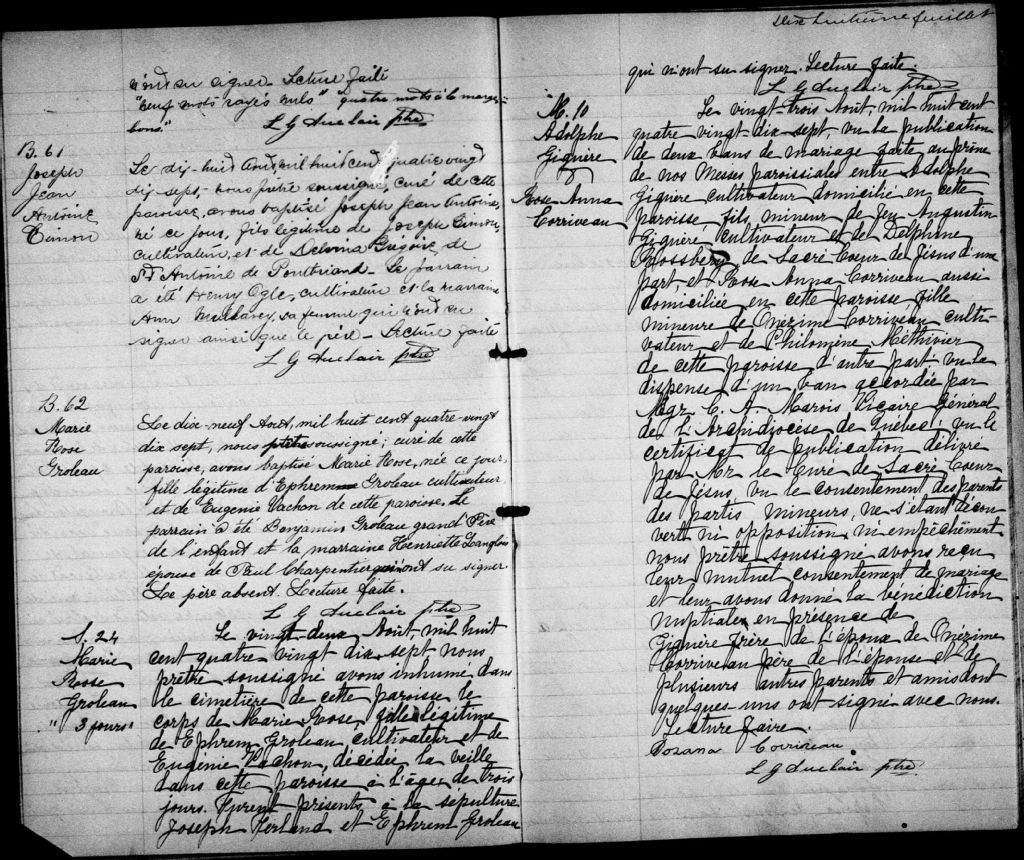 n'ont su signer. Lecture faite
"neuf mots rayés nuls" "quatre mots à la marge
bons."
L G Auclair ptre
B. 61
Joseph
Jean
Antoine
Simon
Le dix-huit Aout, mil huit cent quatre vingt
dix sept, nous prêtre soussigné, curé de cette
paroisse, avons baptisé Joseph Jean Antoine,
né ce jour, fils légitime de Joseph Simon,
cultivateur, et de Delvina Grégoire, de
St Antoine de Pontbriand. Le parrain
a été Henry Ogle, cultivateur et la marraine
Ann sa femme qui n'ont su
signer ainsi que le père. Lecture faite
L G Auclair ptre
B. 62
Marie
Rose
Groleau
Le dix-neuf Aout, mil huit cent quatre-vingt
dix sept, nous ptre soussigné, curé de cette
paroisse, avons baptisé Marie Rose, née ce jour,
fille légitime d'Ephrem Groleau cultivateur
et de Eugenie Vachon de cette paroisse. Le
parrain a été Benjamin Groleau grand Père
de l'enfant et la marraine Henriette Langlois
épouse de Paul Charpentier qui n'ont su signer
Le père absent. Lecture faite.
L G Auclair ptre
S. 24
Marie
Rose
Groleau
" 3 jours"
Le vingt-deux Août mil huit
cent quatre vingt dix sept nous
prêtre soussigné avons inhumé dans
le cimetière de cette paroisse le
corps de Marie Rose fille légitime
de Ephrem Groleau cultivateur et de
Eugénie Vachon, décédée la veille
dans cette paroisse à l'âge de trois
jours. Furent présents à la sépulture
Joseph Ferland et Ephrem Groleau
Dix huitième feuillet
qui n'ont su signer. Lecture faite.
L G Auclair ptre
M. 10
Adolphe
Giguère
&
Rose Anna
Corriveau
Le vingt-trois Août, mil huit cent
quatre vingt-dix-sept, vu la publication
de deux bans de mariage faite au prône
de nos Messes paroissiales entre Adolphe
Giguère cultivateur domicilié en cette
paroisse, fils mineur de feu Augustin
Giguère, cultivateur et de Delphine
Rossberg de Sacré Coeur de Jésus d'une
part, et Rose Anna Corriveau aussi
domiciliée en cette paroisse fille
mineure de Onézime Corriveau culti-
vateur et de Philomène Méthivier
de cette paroisse d'autre part, vu la
dispense d'un ban accordée par
Mgr C. A. Marois Vicaire Général
de l'Archidiocèse de Québec, vu le
certificat de publication délivré
par Mr le Curé de Sacré Coeur
de Jésus, vu le consentement des parents
des partis mineurs, ne s'étant décou-
vert ni opposition, ni empêchement
nous prêtre soussigné avons reçu
leur mutuel consentement de mariage
et leur avons donné la bénédiction
nuptiale en présence de
Giguère frère de l'époux de Onézime
Corriveau père de l'épouse et de
plusieurs autres parents et amis dont
quelques-uns ont signé avec nous.
Lecture faire.
Rosana Corriveau.
L G Auclair ptre